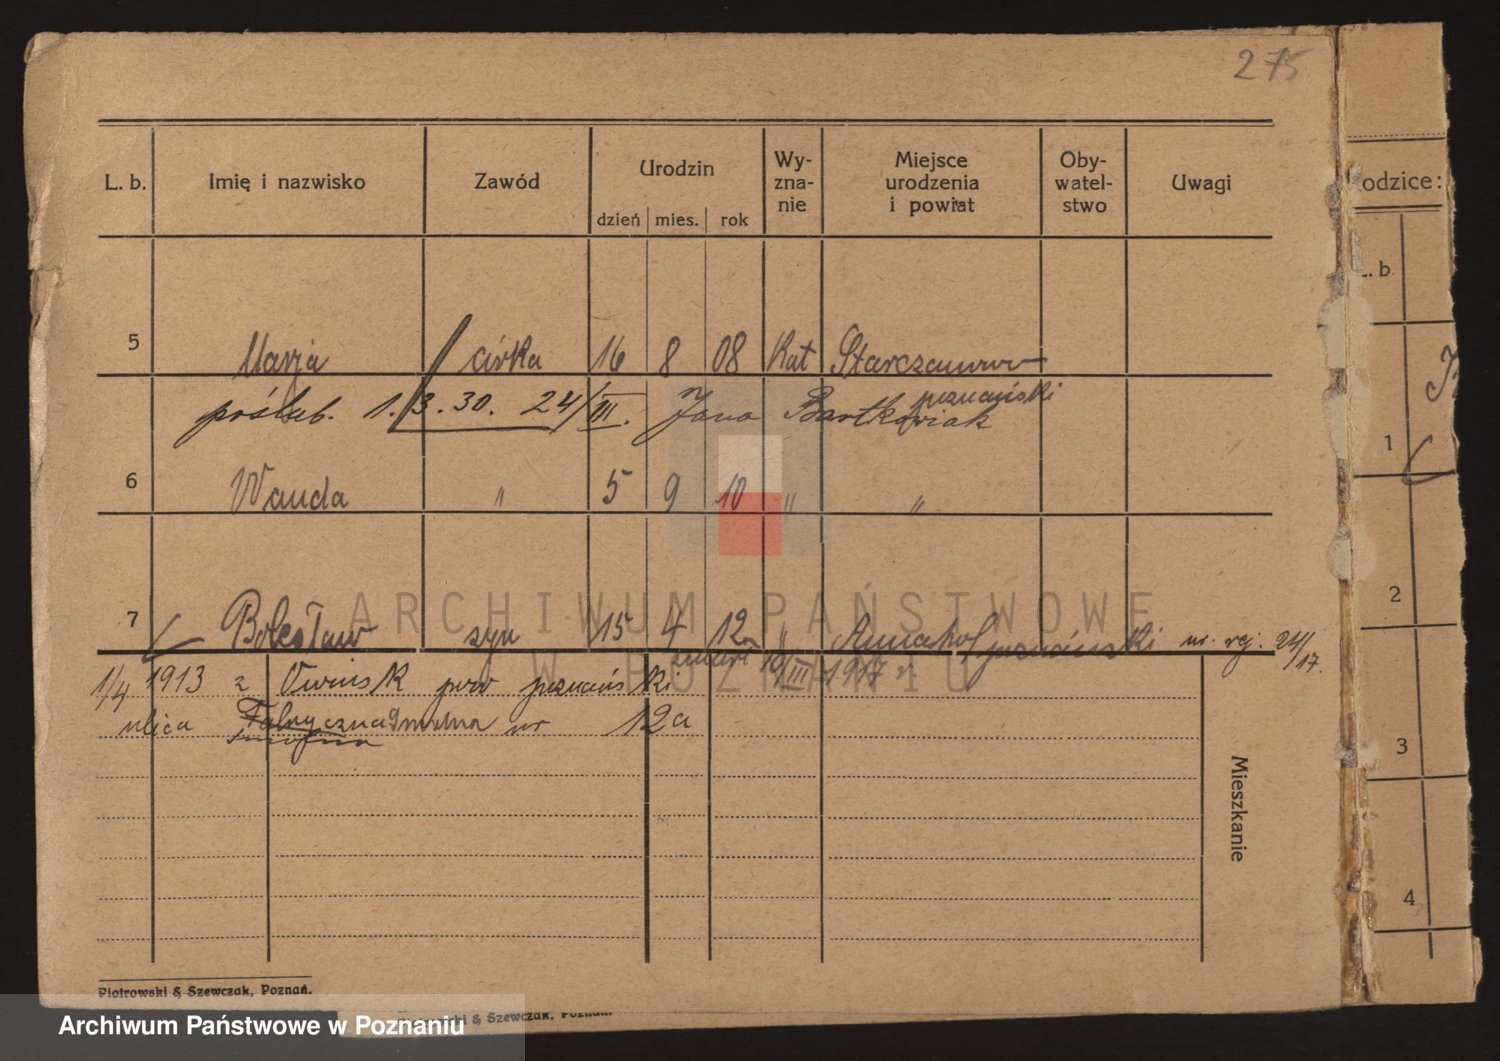 275
L. b. Imię i nazwisko Zawód Urodzin dzień mies. rok Wy-zna-nie Miejsce urodzenia i powiat Oby-watel-stwo Uwagi
5 Marja córka 16 8 08 Kat Starczanowo
poznański
poślub. 1./3.30. 24/III. Jana Bartkowiak
6 Wanda " 5 9 10 " "
7 Bolesław syn 15 4 12 " poznański nr. rej. 24/17.
zmarł 10/III 1917 r.
1/4 1913 z Owinsk pow poznański
ulica Fabryczna nr 12a
Mieszkanie
Piotrowski & Szewczak, Poznań.
& Szewczak, Poznań.
odzice:
L. b.
1
2
3
4
ARCHIWUM PAŃSTWOWE
W POZNANIU
Archiwum Państwowe w Poznaniu